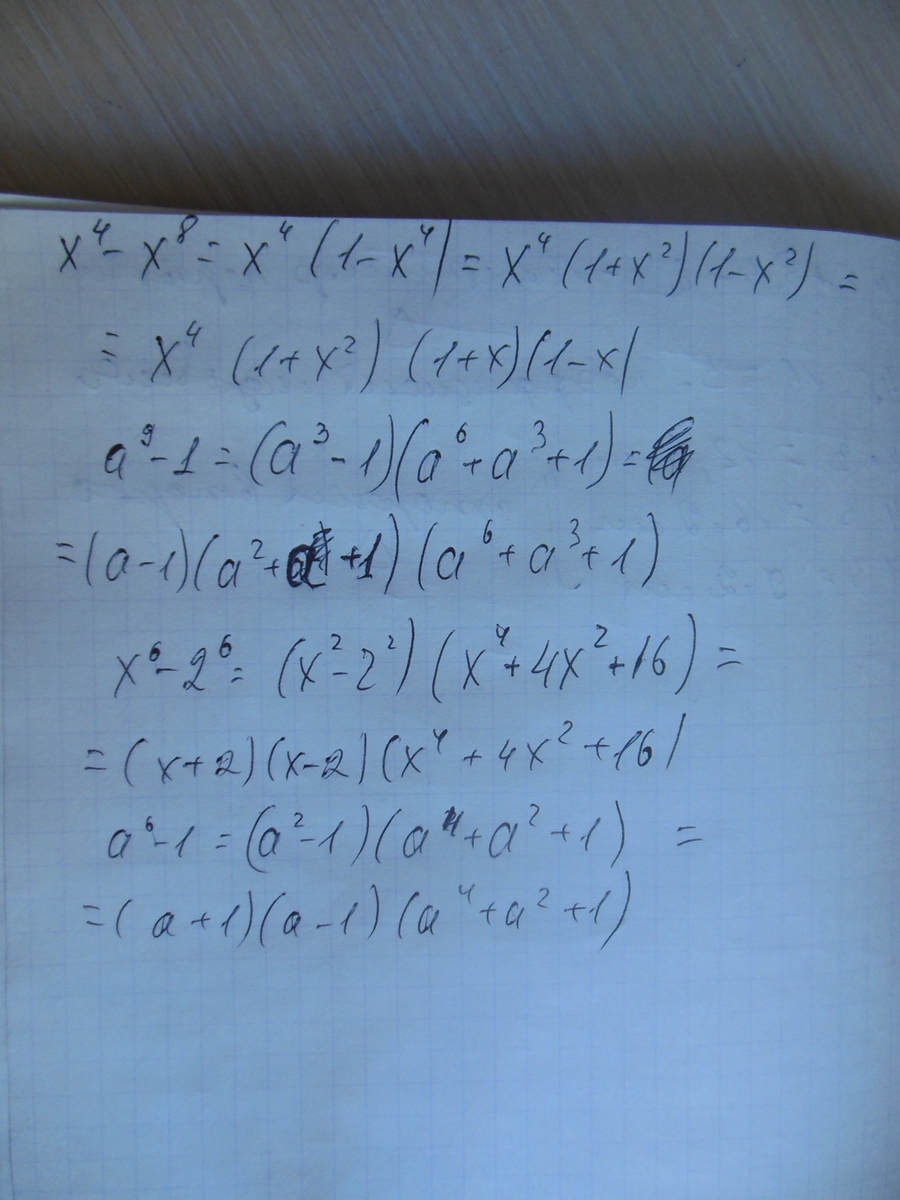 x⁴ - x⁸ = x⁴ (1 - x⁴) = x⁴ (1 + x²)(1 - x²) =
= x⁴ (1 + x²) (1 + x)(1 - x)
a⁹ - 1 = (a³ - 1)(a⁶ + a³ + 1) =
= (a - 1)(a² + a + 1)(a⁶ + a³ + 1)
x⁶ - 2⁶ = (x² - 2²)(x⁴ + 4x² + 16) =
= (x + 2)(x - 2)(x⁴ + 4x² + 16)
a⁶ - 1 = (a² - 1)(a⁴ + a² + 1) =
= (a + 1)(a - 1)(a⁴ + a² + 1)